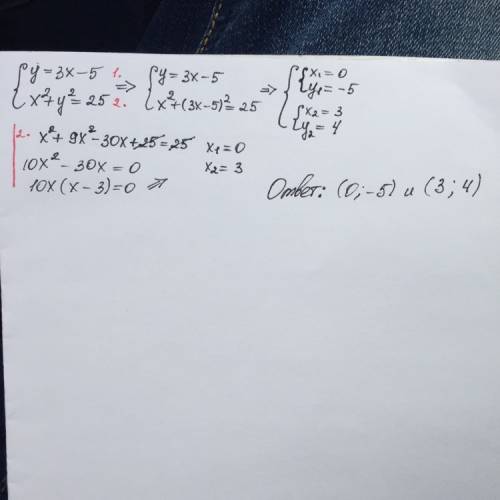 { y = 3x - 5 1. => { y = 3x - 5 => { { x₁ = 0
{ x² + y² = 25 2. { x² + (3x - 5)² = 25 { y₁ = -5
{ x₂ = 3
{ y₂ = 4
2. x² + 9x² - 30x + 25 = 25 x₁ = 0
10x² - 30x = 0 x₂ = 3
10x (x - 3) = 0 =>
Ответ: (0; -5) и (3; 4)